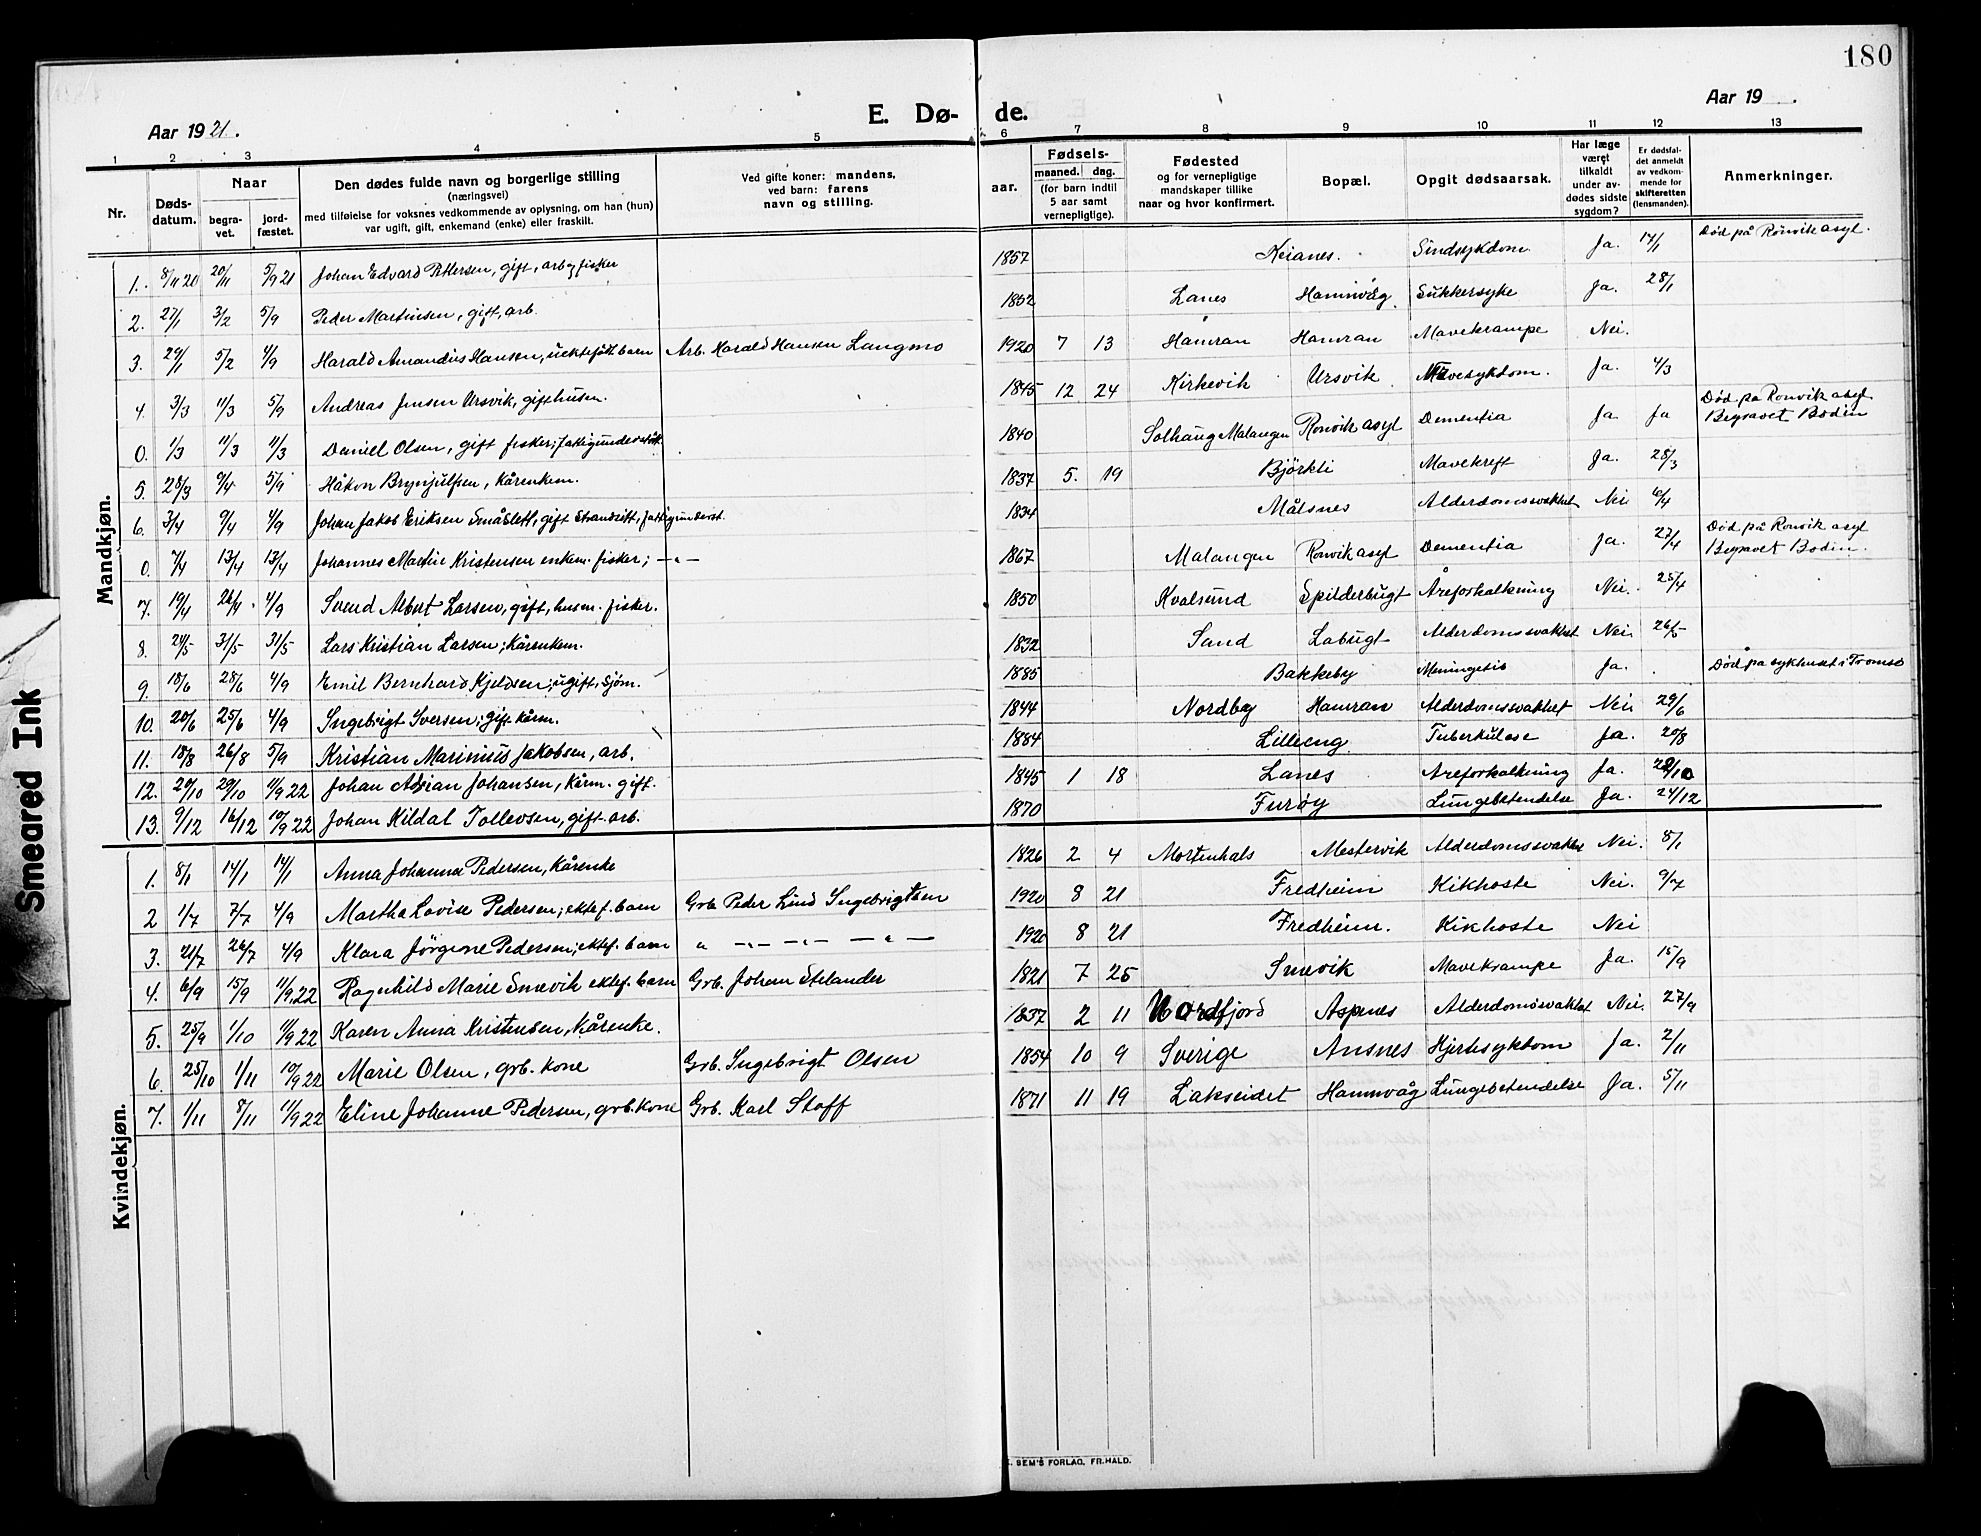 180
Aar 1921.
E. Dø-
de.
Aar 19 .
1 2 3 4 5 6 7 8 9 10 11 12 13
Nr.
Døds-
datum.
Naar
begra-
vet.
jord-
fæstet.
Den dødes fulde navn og borgerlige stilling
(næringsvei)
med tilføielse for voksnes vedkommende av oplysning, om han (hun)
var ugift, gift, enkemand (enke) eller fraskilt.
Ved gifte koner: mandens,
ved barn: farens
navn og stilling.
Fødsels-
aar.
maaned. dag.
(for barn indtil
5 aar samt
vernepligtige).
Fødested
og for vernepligtige
mandskaper tillike
naar og hvor konfirmert.
Bopæl.
Opgit dødsaarsak.
Har læge
været
tilkaldt
under av-
dødes sidste
sygdom?
Er dødsfal-
det anmeldt
av vedkom-
mende for
skifteretten
(lensmanden).
Anmerkninger.
Mandkjøn.
1. 8/11 20 20/11 5/9 21 Johan Edvard Pettersen, gift, arb og fisker 1857 Keianes. Sindsykdom Ja. 14/1 Død på Rønvik asyl.
2. 27/1 3/2 5/9 Peder Martinsen, gift, arb. 1852 Lanes Hamnvåg Sukkersyke Ja. 28/1
3. 29/1 5/2 4/9 Harald Amandus Hansen, uektefött barn Arb. Harald Hansen Langmo 1920 7 13 Hamran Hamran Mavekrampe Nei.
4. 3/3 11/3 5/9 Andreas Jensen Ursvik, gift husm. 1845 12 24 Kirkevik Ursvik Mavesykdom. Ja. 4/3
0. 1/3 11/3 11/3 Daniel Olsen, gift fisker; fattigunderstöt. 1840 Solhaug Malangen Rønvik asyl Dementia Ja Ja Død på Rønvik asyl Begravet Bodin
5. 28/3 9/4 5/9 Håkon Brynjulfsen, Kårenkem. 1837 5. 19 Björkli Mavekreft Ja. 28/3
6. 3/4 9/4 4/9 Johan Jakob Eriksen Småslett, gift Strandsitt, fattigunderst. 1834 Målsnes Alderdomssvakhet Nei 6/4
0. 7/4 13/4 13/4 Johannes Martin Kristensen enkem. fisker; —"— 1867 Malangen Rønvik asyl Dementia Ja. 27/4 Død på Rønvik asyl Begravet Bodin.
7. 19/4 26/4. 4/9 Svend Albert Larsen, gift, husm. fisker. 1850 Kvalsund Spilderbugt Åreforkalkning Nei. 25/4
8. 24/5 31/5 31/5 Lars Kristian Larsen; Kårenkem. 1832 Sand Labugt Alderdomssvakhet Nei 26/5
9. 18/6 28/6 4/9 Emil Bernhard Kjeldsen; ugift, sjöm. 1885 Bakkeby Meningetis Ja. Død på sykhuset i Tromsø
10. 20/6 25/6 4/9 Ingebrigt Iversen; gift kårm. 1844 Nordby Hamran Alderdomssvakhet Nei 29/6
11. 18/8 26/8 5/9 Kristian Marinius Jakobsen, arb. 1884 Lilleeng Tuberkulose Ja. 20/8
12. 20/10 29/10 11/9 22 Johan Adrian Johansen, Kårm. gift. 1845 1 18 Lanes Areforkalkning Ja. 22/10
13. 9/12 16/12 10/9 22 Johan Kildal Tollevsen, gift. arb. 1870 Furøy Lungebetendelse Ja. 24/12
Kvindekjøn.
1. 8/1 14/1 14/1 Anna Johanna Pedersen, Kårenke 1826 2 4 Mortenhals Mestervik Alderdomssvakhet Nei. 8/1
2 1/7 7/7 4/9 Martha Lovise Pedersen; ektef. barn Grb. Peder Lind Ingebrigtsen 1920 8 21 Fredheim Kikhoste Nei. 9/7
3. 21/7 26/7 4/9 Klara Jörgine Pedersen; ektef. barn " —"— —"— —"— 1920 8 21 Fredheim. Kikhoste Nei
4. 6/9 15/9 11/9 22 Ragnhild Marie Snevik ektef. barn Grb. Johan Stelander 1821 7 25 Snevik Mavekrampe Ja. 15/9
5. 25/9 1/10 11/9 22 Karen Anna Kristensen, Kårenke. 1837 2 11 Nordfjord Aspenes Alderdomssvakhet Nei. 27/9
6. 25/10 1/11 10/9 22 Marie Olsen, grb. kone Grb. Ingebrigt Olsen 1854 10 9 Sverige Ansnes Hjertesykdom Ja. 2/11
7. 1/11 8/11 11/9 22 Eline Johanne Pedersen, grb. kone Grb. Karl Stoff 1871 11 19 Lakseidet Hamnvåg Lungebetendelse Ja. 5/11
SEM'S FORLAG, FR.HALD.
Smeared Ink